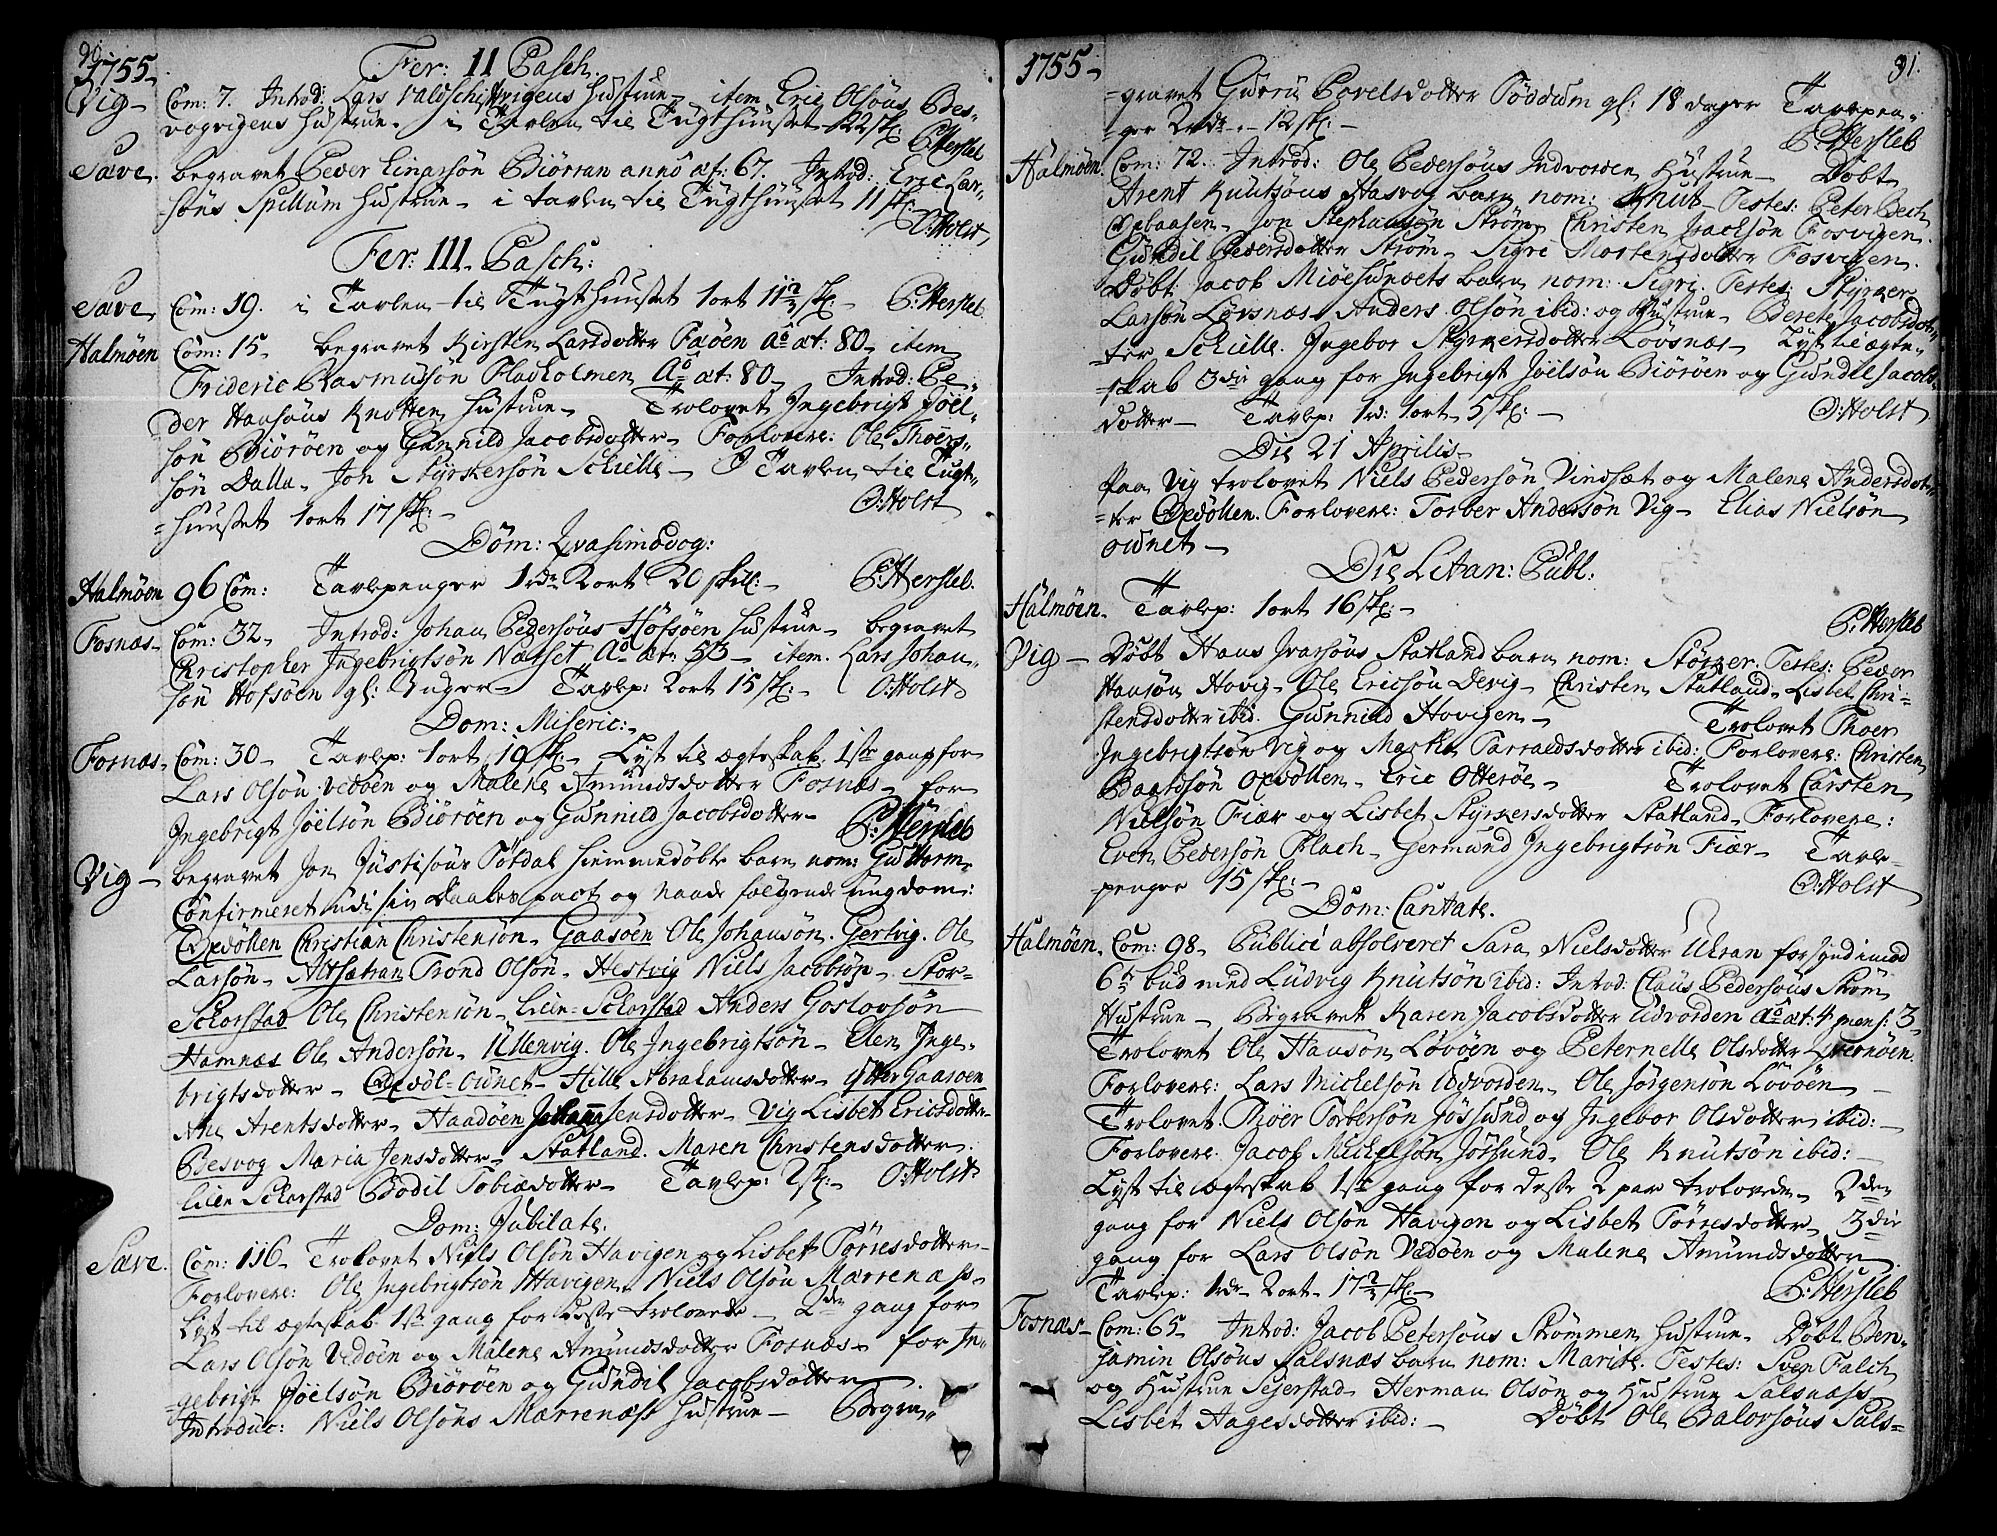 90.
1755.
Fer: II Pasch.
Vig. Com: 7. Introd: Lars Valdschi Vrigens Hustrue. item Eric Olsöns Bes-
vogvigens Hustrue. i Tavlen til Tugthuuset 22 sk: P: Hersleb
Sæve. begravet Peder Einarsön Biörran anno æt: 67. Introd: Eric Lar-
söns Spillum Hustrue. i tavlen til Tugthuuset 11 sk: O: Holst
Fer: III. Pasch:
Sæve Com: 19. i Tavlen til Tugthuuset 1 ort 11 1/2 sk: P: Hersleb
Halmöen Com: 15. begravet Kirsten Larsdotter Faöen Aô æt: 80. item
Frideric Rasmusön Fladholmen Aô æt: 80. Introd: Pe-
der Hansöns Knotten Hustrue. Trolovet Ingebrigt Jöel-
sön Biöröen og Gunnild Jacobsdotter. Forlovere: Ole Thoers-
sön Dalla. Jon Styrkersön Schielle. I Tavlen til Tugt-
huuset 1 ort 17 sk: O: Holst
Dom: Qvasimodog:
Halmöen 96 Com: Tavlepenger 1 rdr 2 ort 20 skill: P: Hersleb.
Fosnæs. Com: 32. Introd: Johan Pedersöns Hofsöen Hustrue. begravet
Christopher Ingebrigtsön Nætset Aô æt: 53. item. Lars Johan-
sön Hofsöen gl: uger. Tavlp: 2 ort 15 sk: O: Holst
Dom: Miseric:
Fosnæs. Com: 30. Tavlp: 1 ort 10 sk: Lyst til ægteskab 1ste gang for
Lars Olsön Vedöen og Malene Amundsdotter Fosnæs. for
Ingebrigt Jöelsön Biöröen og Gunnild Jacobsdotter. P: Hersleb
Vig. begravet Jon Justisöns Sötdal hiemmedöbte barn nom: Gutthorm.
Confirmeret udi sin daabes pact og naade fölgende ungdom:
Opdöllen Christian Christensön. Gaasöen Ole Johansön. Gertvig. Ole
Larsön. Altsætran Trond Olsön. Hestvig Niels Jacobsön. Stor-
Sckorstad Ole Christensön. Lilen-Sckorstad Anders Goslovsön
Hamnæs Ole Andersön. Ullenvig. Ole Ingebrigtsön. Elen Inge-
brigtsdotter. Opdöl-Ounet. Hille Abrahamsdotter. Ytter Gaasöen
Ane Arentsdotter. Haadöen Johanna Jensdotter. Vig Lisbet Ericsdotter
Besvog Maria Jensdotter. Statland. Maren Christensdotter.
Lilen Sckorstad Bodil Tobiædotter. Tavlp: 2 sk: O: Holst
Dom: Jubilate.
Sæve. Com: 116. Trolovet Niels Olsön Havigen og Lisbet Törresdotter.
Forlovere: Ole Ingebrigtsön Havigen. Niels Olsön Marrenæss.
Lyst til ægteskab 1ste gang for desse trolovede. 2den gang for
Lars Olsön Vedöen og Malene Amundsdotter Fosnæs. for In-
gebrigt Jöelsön Biöröen og Gundil Jacobsdotter.
Introduc: Niels Olsöns Marrenæss Hustrue. Begra-
1755.
91.
gravet Guru Povelsdotter Föddum gl: 18 dager Tavlepen-
ger 2 rdr. 12 sk: P: Hersleb
Halmöen. Com: 72. Introd: Ole Pedersöns Indvorden Hustrue. Döbt
Arent Knutsöns Hasvog barn nom: Knut. Testes: Peter Bech
Opbaasen. Jon Stephansön Ström. Christen Isachsön Fosvigen.
Gundil Pedersdotter Ström. Sigri Mortensdotter Fosvigen.
Döbt Jacob Miöesundets barn nom: Sigri. Testes: Styrker
Larsön Lövsnæs. Anders Olsön ibid: og Hustrue. Berete Jacobsdot-
ter Schielle. Ingebor Styrkersdotter Lövsnæs. Lyst til ægte-
skab 3die gang for Ingebrigt Jöelsön Biöröen og Gundil Jacobs-
dotter. Tavlp: 1 rd: 1 ort 5 sk: O: Holst
Die 21 Aprilis.
Paa Vig trolovet Niels Pedersön Vindsæt og Malene Andersdot-
ter Opdöllen. Forlovere: Torber Andersön Vig. Elias Nielsön
Ounet.
Die Litan: Publ:
Halmöen. Tavlp: 1 ort 16 sk: P: Hersleb
Vig. Döbt Hans Ivarsöns Statland barn nom: Störker. Testes: Peder
Hansön Hovig. Ole Ericsön Devig. Christen Statland. Lisbet Chri-
stensdotter ibid. Gunnild Hovigen. Trolovet Thoer
Ingebrigtsön Vig og Marte Tarraldsdotter ibid: Forlovere: Christen
Baardsön Opdöllen. Eric Otteröe. Trolovet Carsten
Nielsön Fiær og Lisbet Styrkersdotter Statland. Forlovere:
Even Pedersön Flach. Germund Ingebrigtsön Fiær. Tavle-
penger 15 sk: O: Holst
Dom: Cantate.
Halmöen. Com: 98. Publicè absolveret Sara Nielsdotter Utran for synd imod
6te bud med Ludvig Knutsön ibid: Introd: Claus Pedersöns Ström
Hustrue. Begravet Karen Jacobsdotter Udvorden aô æt: 4 mens: 3
Trolovet Ole Hansön Lövöen og Peternelle Olsdotter Qvernöen.
Forlovere: Lars Mickelsön Udvorden. Ole Jörgensön Lövöen
Trolovet. Thoer Torbersön Jössund og Ingebor Olsdotter ibid:
Forlovere. Jacob Mickelsön Jössund. Ole Knutsön ibid:
Lyst til ægteskab 1ste gang for desse 2 par trolovede. 2den
gang for Niels Olsön Havigen og Lisbet Törresdotter. 3die
gang for Lars Olsön Vedöen og Malene Amundsdotter
Tavlp: 1 rdr 2 ort. 17 1/2 sk: P: Hersleb
Fosnæs. Com: 65. Introd: Jacob Petersöns Strömmen Hustrue. Döbt Ben-
jamin Olsöns Salsnæs barn nom: Marite. Testes: Sven Falch
og Hustrue Sejerstad. Herman Olsön og Hustrue Salsnæss.
Lisbet Hagesdotter ibid: Döbt Ole Baldersöns Sals-